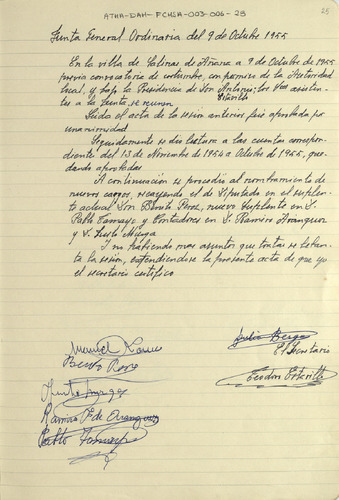 ATHA-DAH-FCHSA-003-006-25
25
Junta General Ordinaria del 9 de Octubre 1955
En la villa de Salinas de Añana a 9 de Octubre de 1955
previa convocatoria de costumbre, con permiso de la Autoridad
local, y bajo la Presidencia de Don Antonio; los Sres asisten-
tes a la Junta, se reunen
Leido el acta de la sesion anterior fué aprobada por
unanimidad
Seguidamente se dió lectura a las cuentas correspon-
diente del 13 de Noviembre de 1954 a Octubre de 1955, que-
dando aprobadas
A continuación se procedió al nombramiento de
nuevos cargos, recayendo el de Diputado en el suplente
actual Don Benito Pérez, nuevo Suplente en D.
Pablo Tamayo y Contadores en D. Ramiro Aranguiz
y D. Justo
Y no habiendo mas asuntos que tratar se levan-
ta la sesión, extendiendose la presente acta de que yo
el secretario certifico
Julio
Manuel
El Secretario
Benito
Teodoro
Justo
Ramiro P. de Aranguiz
Pablo Tamayo